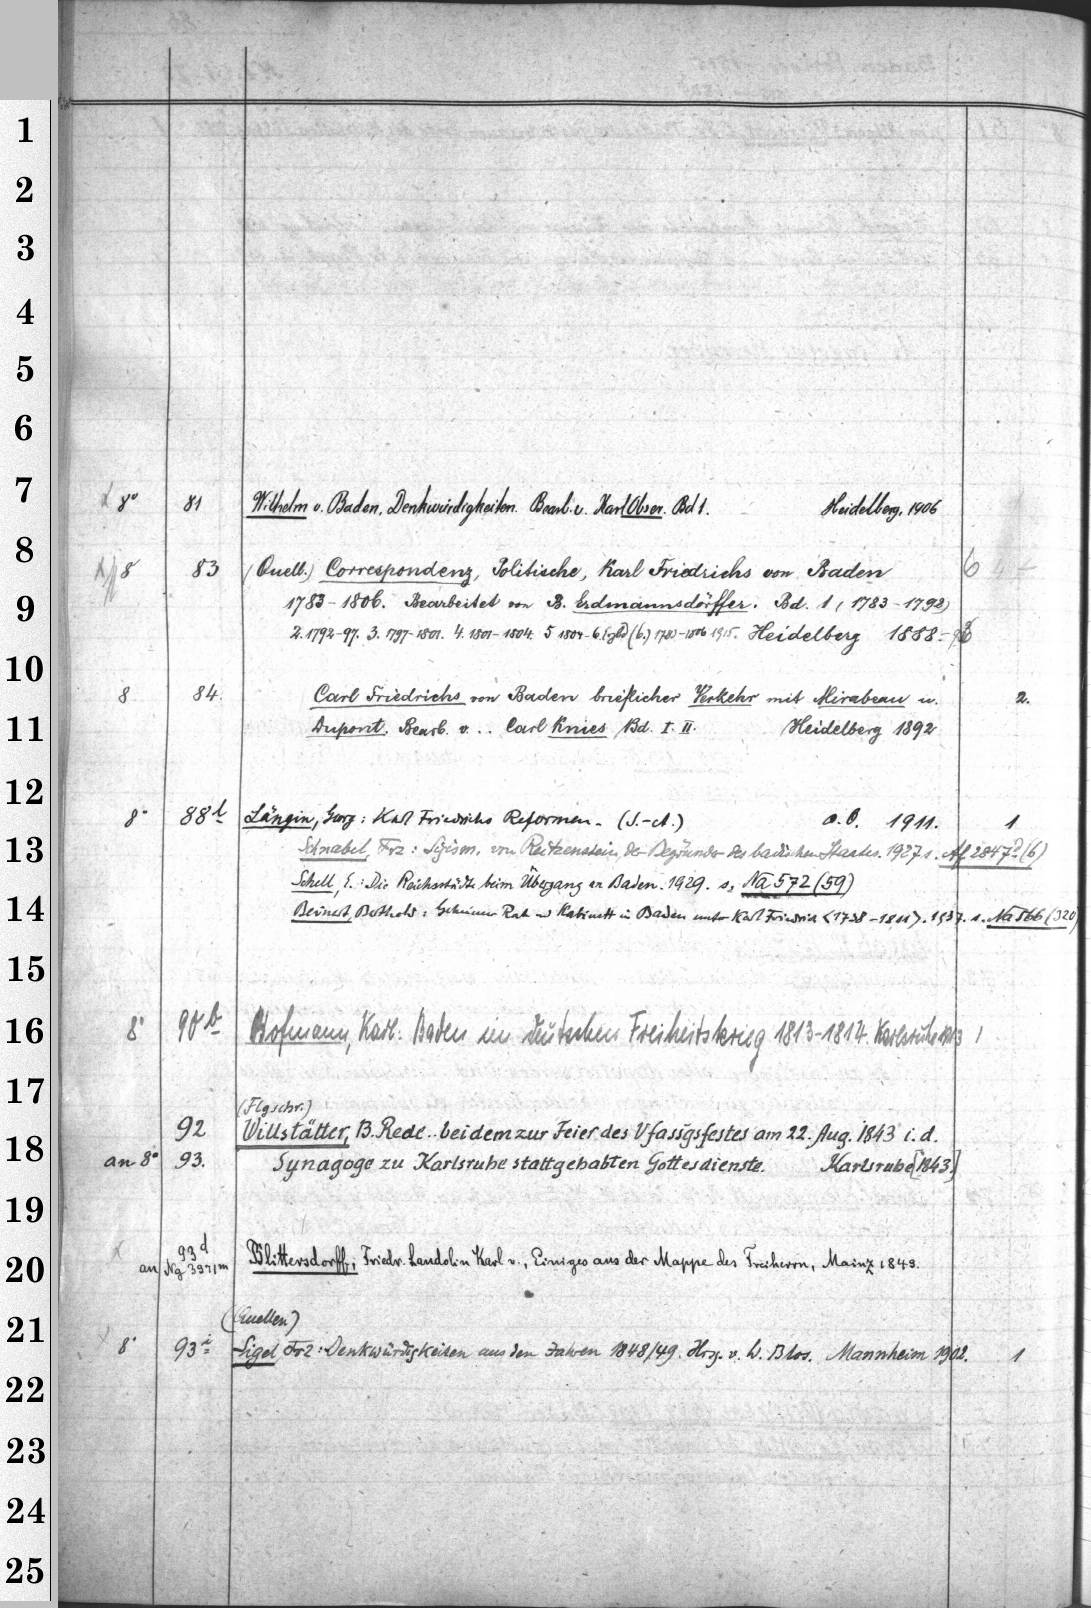 1
2
3
4
5
6
7
8° 81 Wilhelm v. Baden, Denkwürdigkeiten. Bearb. v. Karl Obser. Bd 1. Heidelberg, 1906
8
8 83 (Quell.) Correspondenz, Politische, Karl Friedrichs von Baden 6
9
1783-1806. Bearbeitet von B. Erdmannsdörffer. Bd. 1 (1783-1792)
2. 1792-97. 3. 1797-1801. 4. 1801-1804. 5 1804-6. (6.) 1783-1806 1915. Heidelberg 1888-
10
8 84. Carl Friedrichs von Baden brieflicher Verkehr mit Mirabeau u. 2.
11
Dupont. Bearb. v. .. Carl Knies Bd. I. II. Heidelberg 1892
12
8° 88 l Längin, Georg: Karl Friedrichs Reformen. (S.-A.) o. O. 1911. 1
13
Schnabel, Frz: Sigism. von Reitzenstein, der Begründer des badischen Staates. 1927 s. Af 2847 (6)
Schell, E.: Die Reichsstädte beim Übergang an Baden. 1929. s. Na 572 (59)
14
Beinert, Berthold: Geheimer Rat und Kabinett in Baden unter Karl Friedrich <1738-1811>. 1937. s. Na 566 (320)
15
16
8° 90 b Hofmann, Karl: Baden im deutschen Freiheitskrieg 1813-1814. Karlsruhe 1913 1
17
(Flgschr.)
92 Willstätter, B. Rede .. bei dem zur Feier des Vfassgsfestes am 22. Aug. 1843 i. d.
18
an 8° 93. Synagoge zu Karlsruhe stattgehabten Gottesdienste. Karlsruhe [1843.]
19
93 d
20
an Ng 3971 m Blittersdorff, Friedr. Landolin Karl v., Einiges aus der Mappe des Freiherrn, Mainz 1849.
21
(Quellen)
8° 93 i Sigel Frz: Denkwürdigkeiten aus den Jahren 1848/49. Hrg. v. W. Blos. Mannheim 1902. 1
22
23
24
25